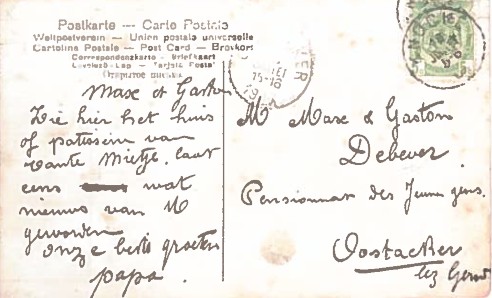 Postkarte — Carte Postale
Weltpostverein — Union postale universelle
Cartolina Postale — Post Card — Brevkort
Correspondenzkarte — Briefkaart
Levelező-Lap — Tarjeta Postal
Открытое письмо
Max et Gaston
Zie hier het huis
of patissein van
tante Mietje. laat
eens wat
nieuws van U
geworden
onze beste groeten
papa.
M Max & Gaston
Debever
Pensionnat des Jeunes gens.
Oostacker
lez Gand